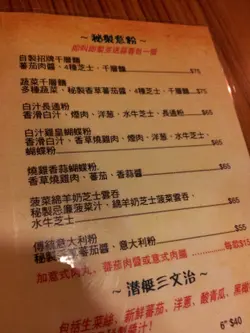 ~ 秘製意粉 ~
自製招牌千層麵
蕃茄肉醬、4種芝士、千層麵 $75
蔬菜千層麵
多種蔬菜、秘製香草蕃茄醬、4種芝士、千層麵 $65
白汁長通粉
香滑白汁、煙肉、洋蔥、水牛芝士、長通粉 $65
白汁雞皇蝴蝶粉
香滑白汁、香草燒雞、煙肉、洋蔥、水牛芝士、
蝴蝶粉 $65
燒雞蒜蓉蝴蝶粉
香草燒雞肉、蕃茄、蒜蓉 $65
菠菜綿羊奶芝士雲吞
秘製忌廉菠菜汁、綿羊奶芝士菠菜雲吞、
水牛芝士 $65
傳統意大利粉
秘製 蕃茄醬、意大利粉 $55
加意式肉丸、蕃茄肉醬或意式肉腸 每款$15
~ 潛艇三文治 ~
包括生菜絲、新鮮蕃茄、洋蔥、酸青瓜、黑橄
6" $40